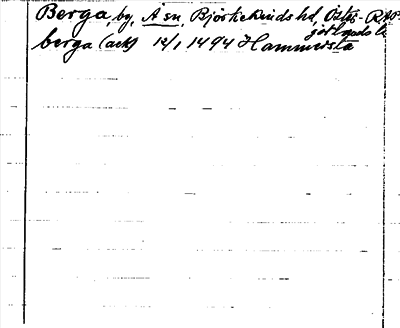 Berga, by, Å sn, Björkekinds hd, Östg- RAP
götlands l.
berga (ack) 12/1 1494 Hammersta